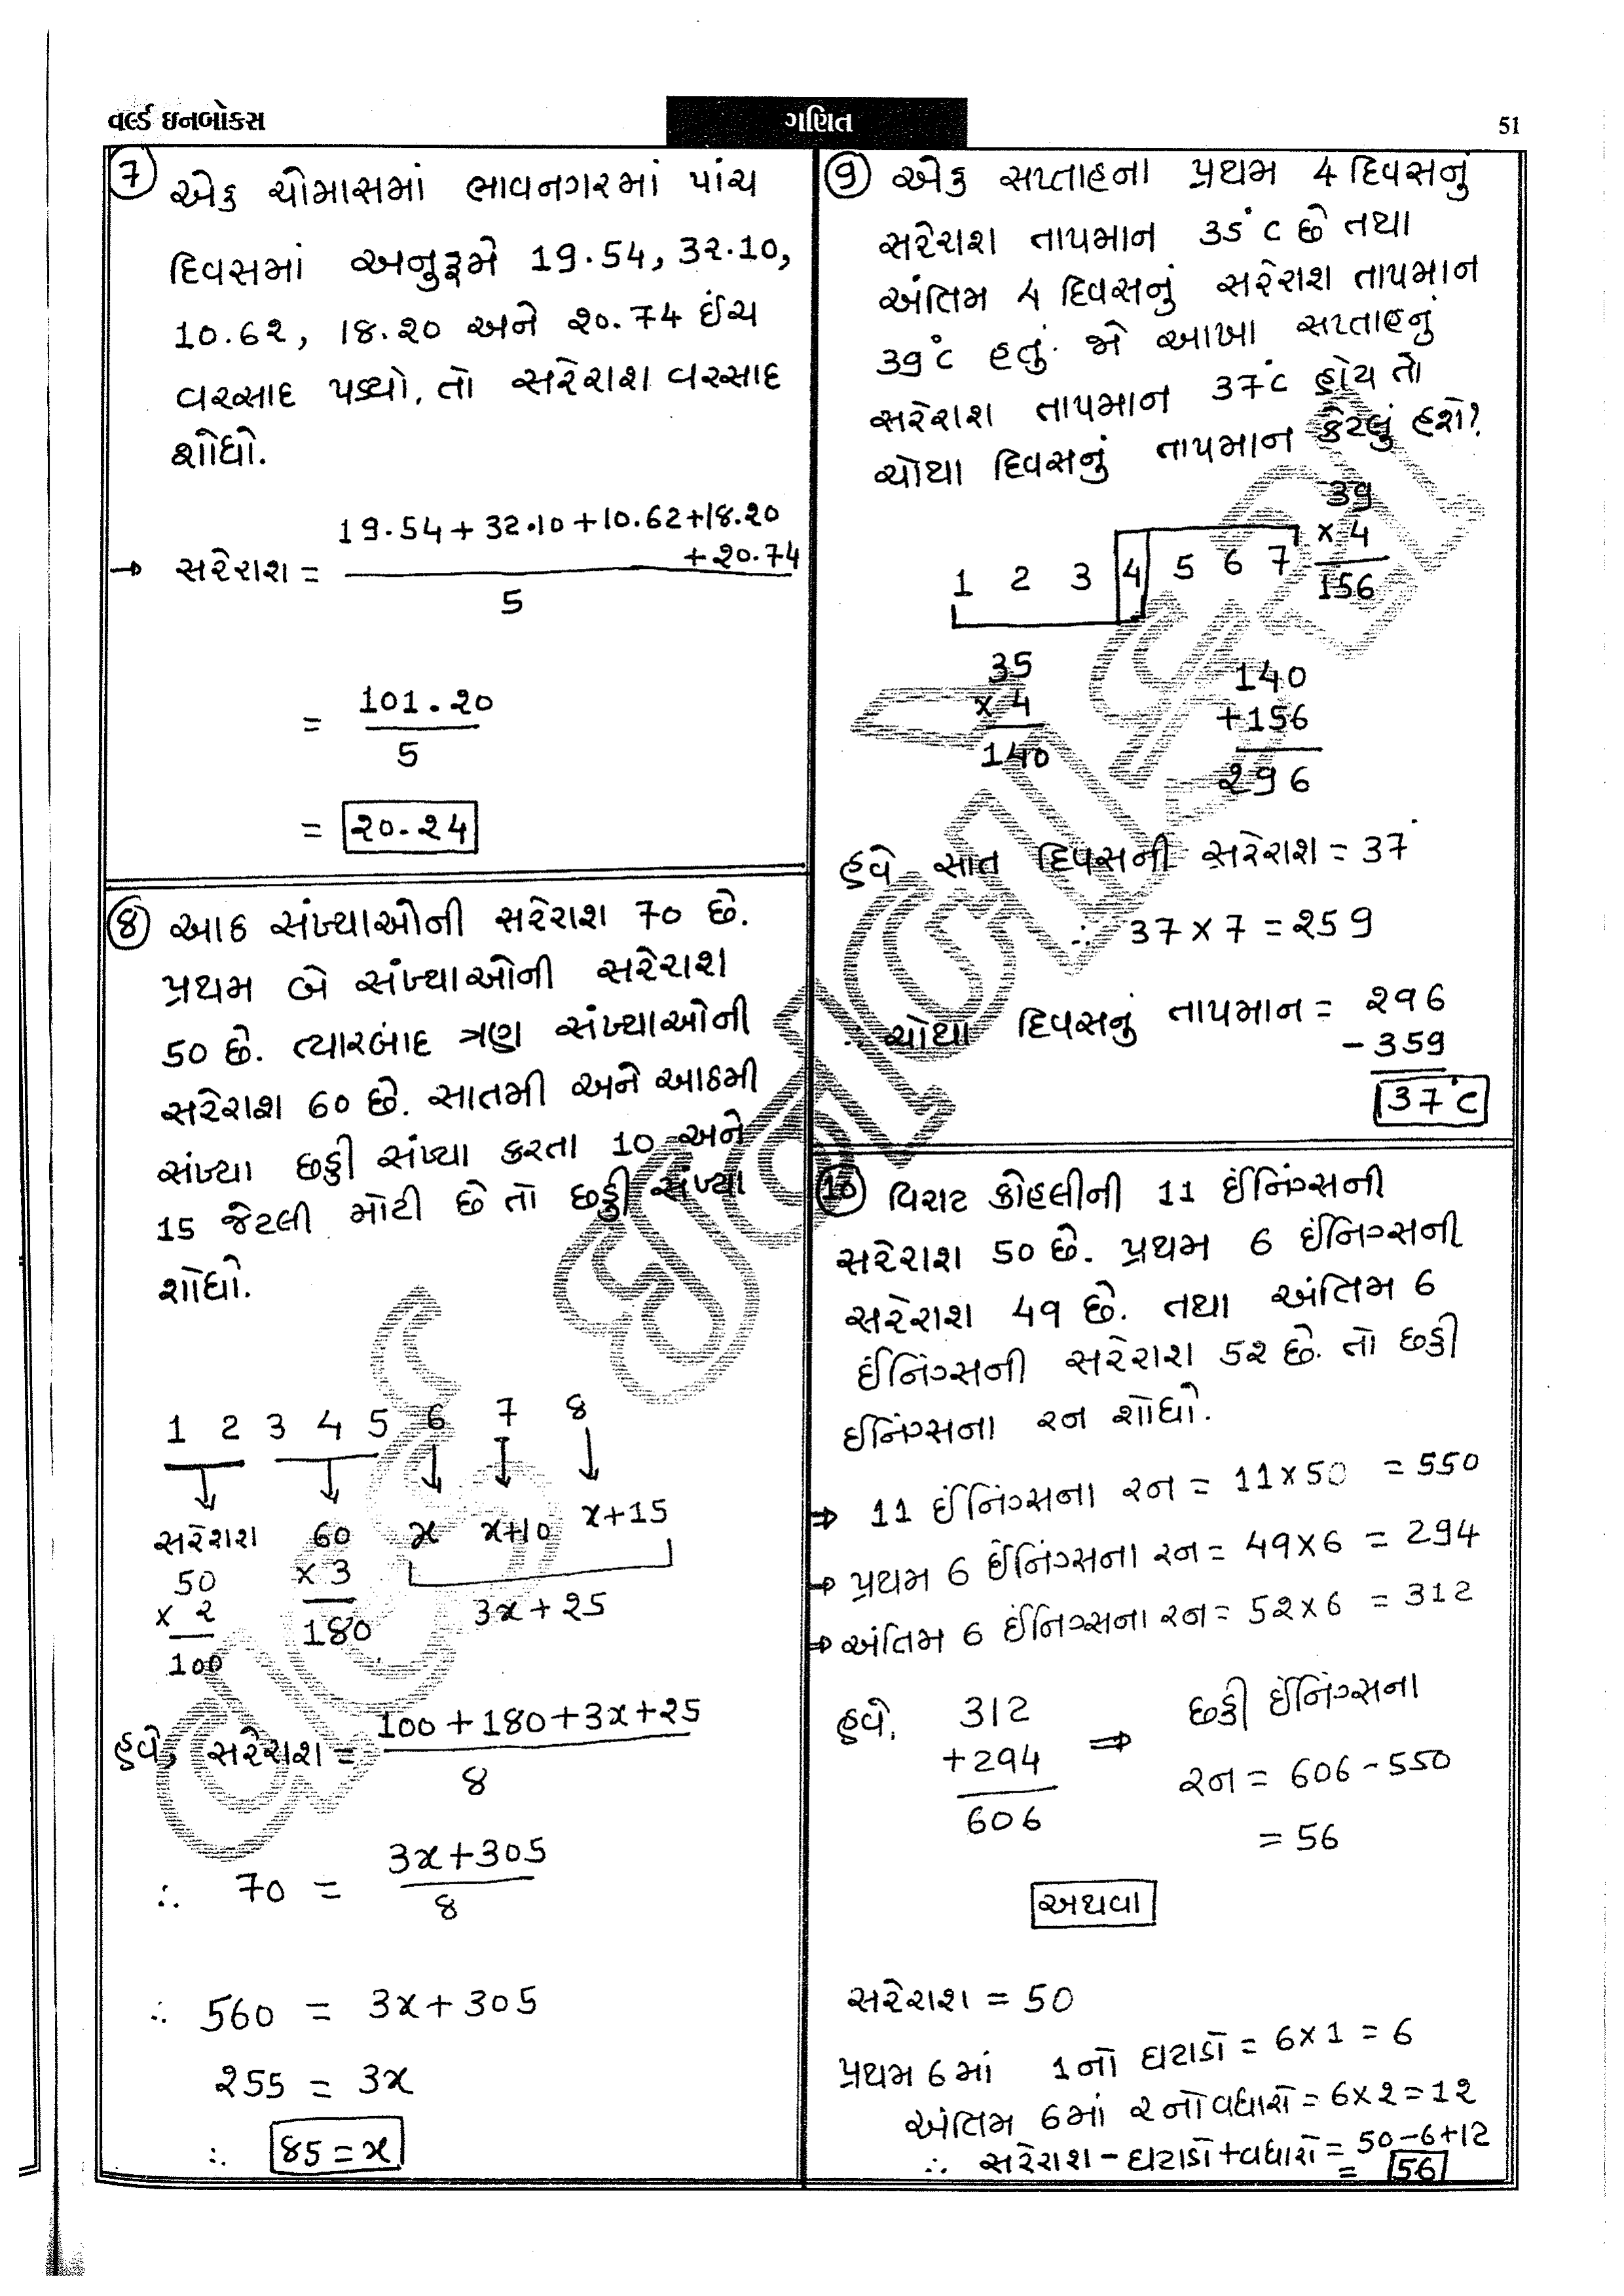 વર્લ્ડ ઇનબોક્સ
ગણિત
51
7 એક ચોમાસમાં ભાવનગરમાં પાંચ
દિવસમાં અનુક્રમે 19.54, 32.10,
10.62, 18.20 અને 20.74 ઈંચ
વરસાદ પડ્યો. તો સરેરાશ વરસાદ
શોધો.
→ સરેરાશ = 19.54 + 32.10 + 10.62 + 18.20
+ 20.74
5
= 101.20
5
= 20.24
8 આઠ સંખ્યાઓની સરેરાશ 70 છે.
પ્રથમ બે સંખ્યાઓની સરેરાશ
50 છે. ત્યારબાદ ત્રણ સંખ્યાઓની
સરેરાશ 60 છે. સાતમી અને આઠમી
સંખ્યા છઠ્ઠી સંખ્યા કરતા 10 અને
15 જેટલી મોટી છે તો છઠ્ઠી સંખ્યા
શોધો.
1 2 3 4 5 6 7 8
સરેરાશ 60 x x+10 x+15
50 x 3
x 2 180 3x + 25
100
હવે, સરેરાશ = 100 + 180 + 3x + 25
8
∴ 70 = 3x + 305
8
∴ 560 = 3x + 305
255 = 3x
∴ 85 = x
9 એક સપ્તાહના પ્રથમ 4 દિવસનું
સરેરાશ તાપમાન 35°C છે તથા
અંતિમ 4 દિવસનું સરેરાશ તાપમાન
39°C હતું. જો આખા સપ્તાહનું
સરેરાશ તાપમાન 37°C હોય તો
ચોથા દિવસનું તાપમાન કેટલું હશે?
39
x 4
156
1 2 3 4 5 6 7
35
x 4
140
140
+156
296
હવે સાત દિવસની સરેરાશ = 37°
∴ 37 x 7 = 259
∴ ચોથા દિવસનું તાપમાન = 296
- 359
37°C
10 વિરાટ કોહલીની 11 ઈનિંગ્સની
સરેરાશ 50 છે. પ્રથમ 6 ઈનિંગ્સની
સરેરાશ 49 છે. તથા અંતિમ 6
ઈનિંગ્સની સરેરાશ 52 છે. તો છઠ્ઠી
ઈનિંગ્સના રન શોધો.
⇒ 11 ઈનિંગ્સના રન = 11 x 50 = 550
⇒ પ્રથમ 6 ઈનિંગ્સના રન = 49 x 6 = 294
⇒ અંતિમ 6 ઈનિંગ્સના રન = 52 x 6 = 312
હવે, 312
+ 294
606
⇒ છઠ્ઠી ઈનિંગ્સના
રન = 606 - 550
= 56
અથવા
સરેરાશ = 50
પ્રથમ 6 માં 1 નો ઘટાડો = 6 x 1 = 6
અંતિમ 6 માં 2 નો વધારો = 6 x 2 = 12
∴ સરેરાશ - ઘટાડો + વધારો = 50 - 6 + 12
= 56